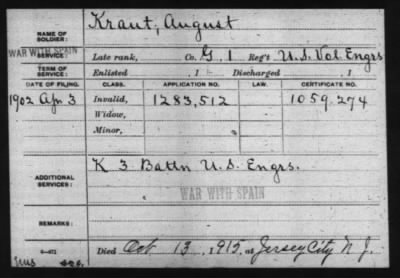 NAME OF SOLDIER: Kraut, August
WAR WITH SPAIN
SERVICE: Late rank, Co. G, 1 Reg't U.S. Vol. Engrs
TERM OF SERVICE: Enlisted , 1 Discharged , 1
DATE OF FILING. CLASS. APPLICATION NO. LAW. CERTIFICATE NO.
1902 Apr 3 Invalid, 1283,512 1059.274
Widow,
Minor,
ADDITIONAL SERVICES: K 3 Battn U.S. Engrs.
WAR WITH SPAIN
REMARKS:
Died Oct 13, 1915, at Jersey City N.J.